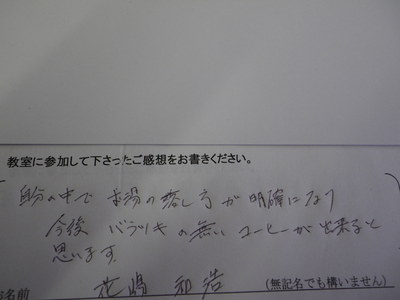 教室に参加して下さったご感想をお書きください。
自分の中でお湯の落し方が明確になり
今後バラツキの無いコーヒーが出来ると
思います。
お名前 花嶋和浩 (無記名でも構いません)